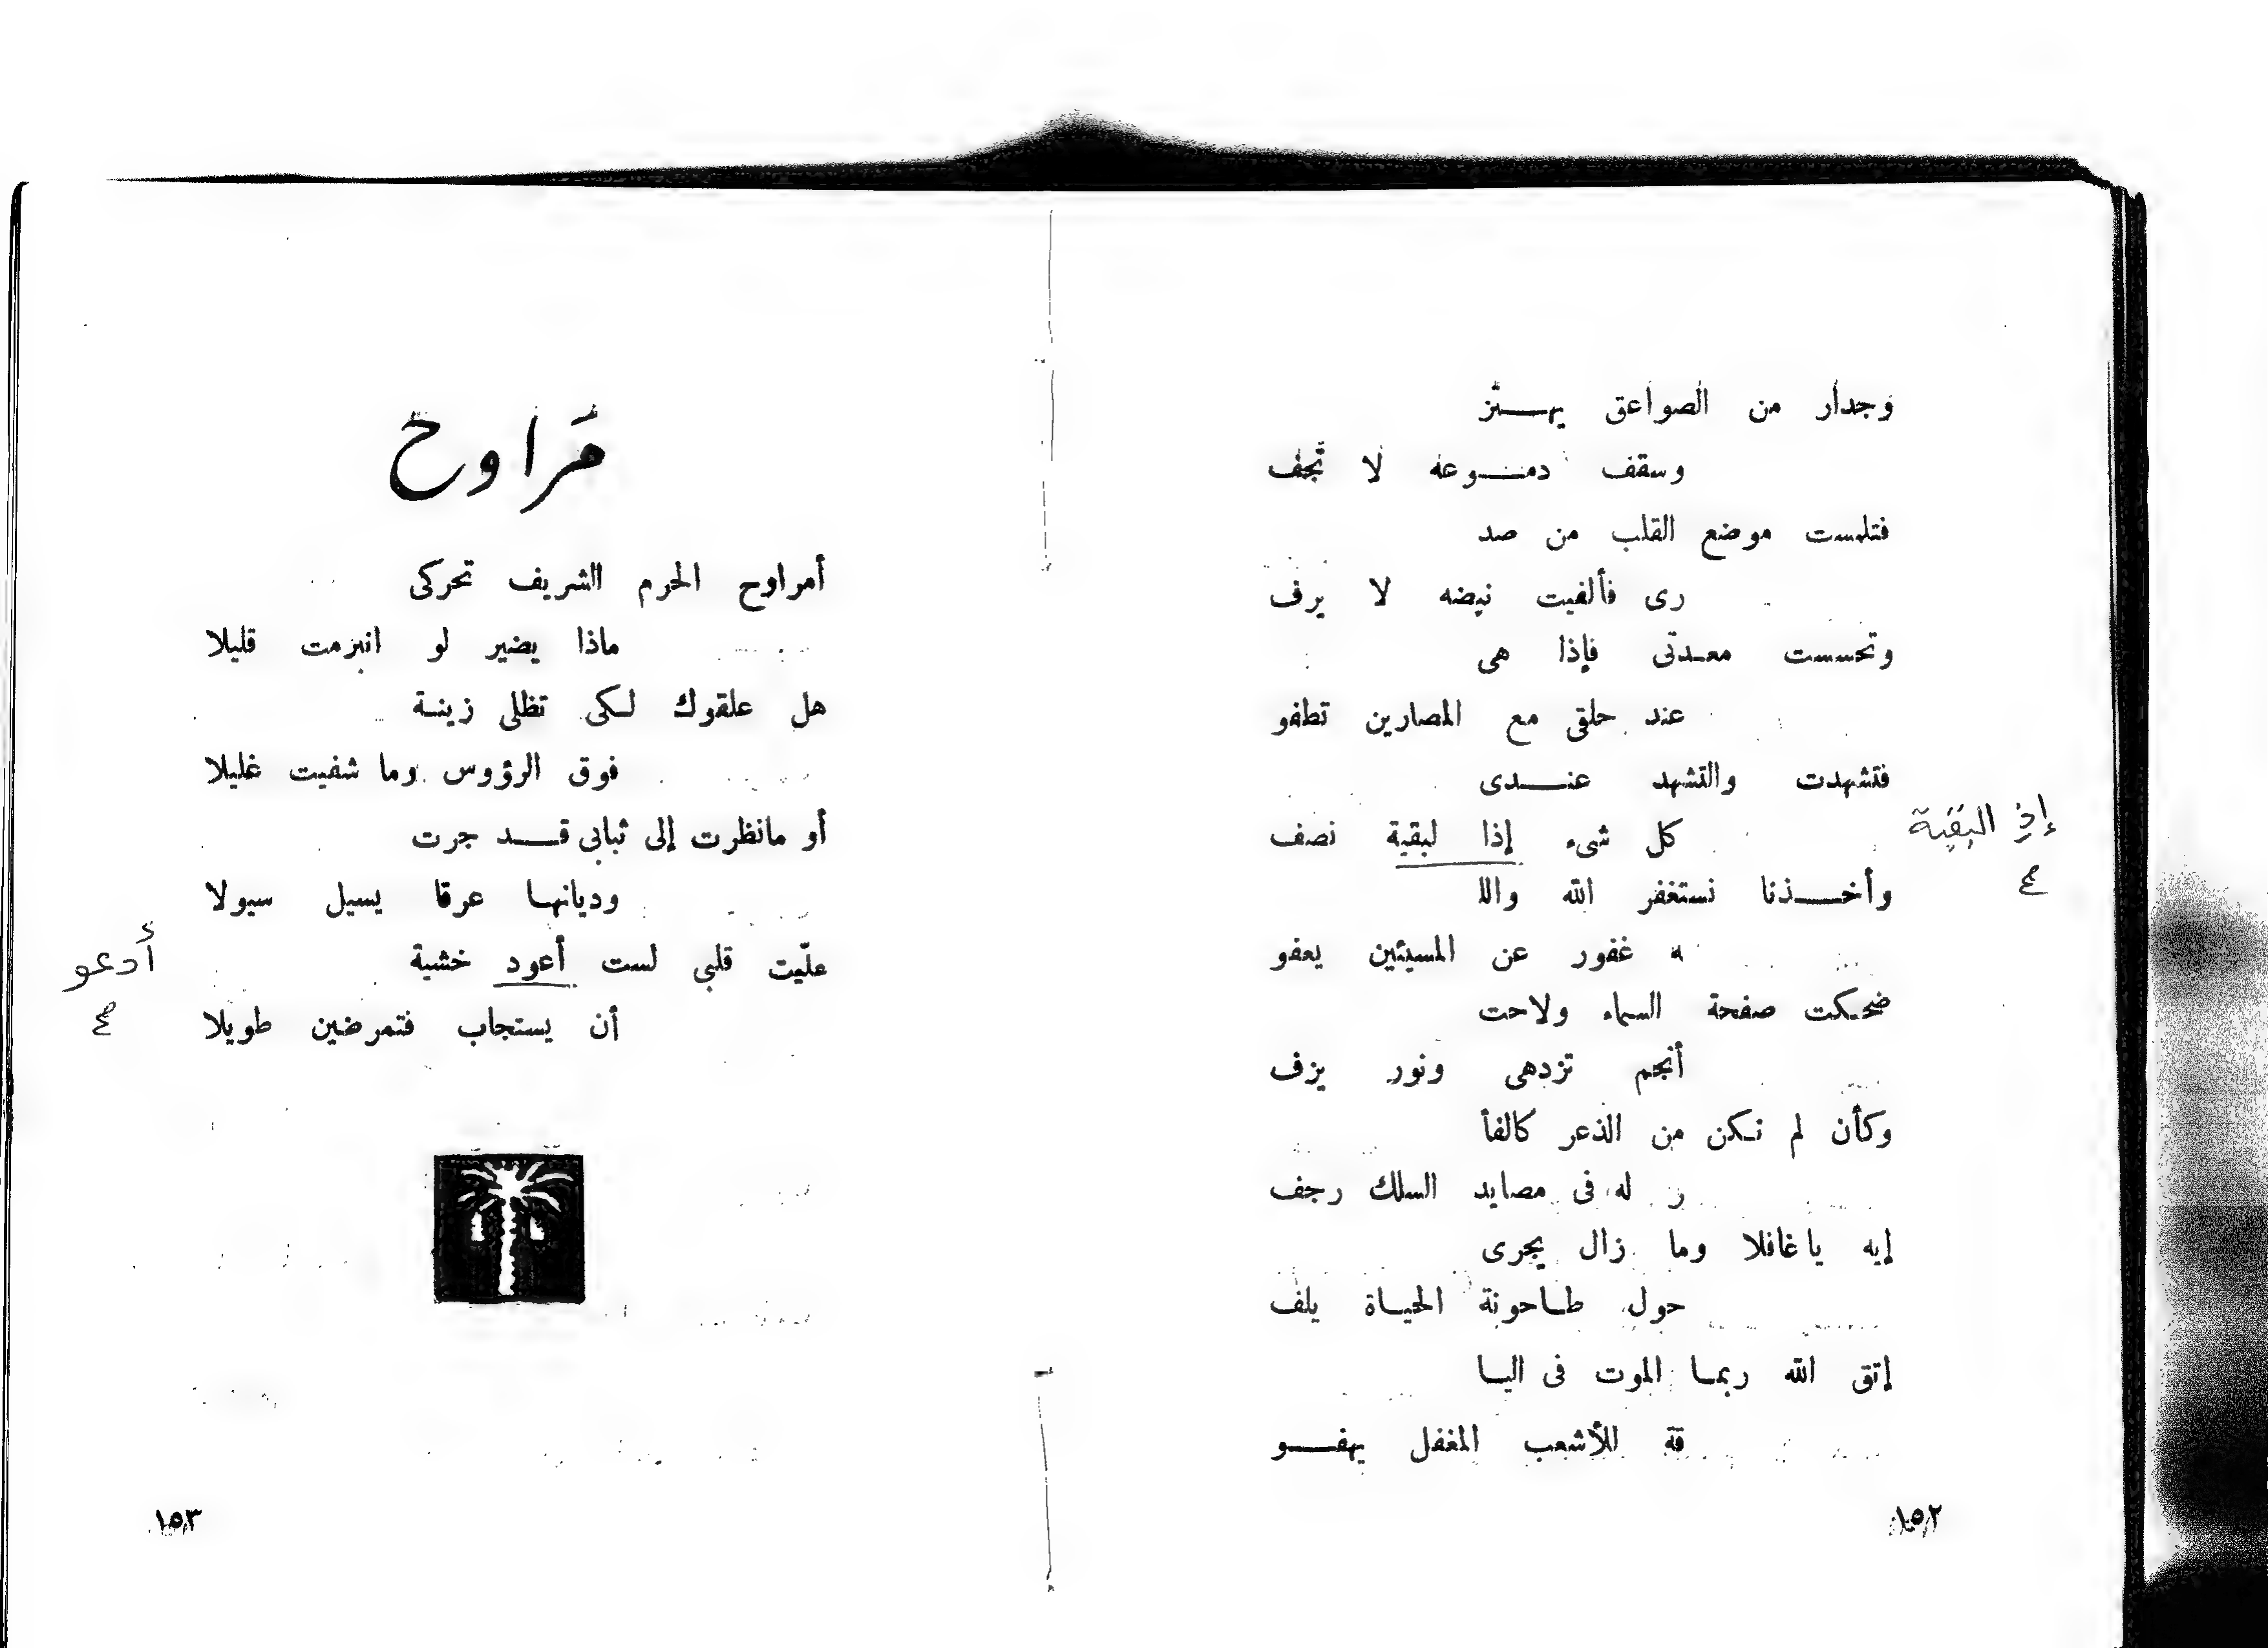 وجدار من الصواعق يهـتز
وسقف دمـوعه لا تجف
فتلمست موضع القلب من صد
رى فألفيت نبضه لا يرف
وتحسست معدتى فإذا هى
عند حلقى مع المصارين تطفو
فتشهدت والتشهد عنـدى
كل شىء إذا لبقية نصف
إذِ البَقية
صح
وأخـذنا نستغفر الله والا
ه غفور عن المسيئين يعفو
ضحكت صفحة السماء ولاحت
أنجم تزدهى ونور يزف
وكأن لم نكن من الذعر كالفأ
ر له فى مصايد السلك رجف
إيه ياغافلا وما زال يجرى
حول طـاحونة الحيـاة يلف
إتق الله ربمـا الموت فى اليـا
قة للأشعب المغفل يهفـو
١٥٢
مَراوح
أمراوح الحرم الشريف تحركى
ماذا يضير لو انبرمت قليلا
هل علقوك لكى تظلى زينـة
فوق الرؤوس وما شفيت غليلا
أو مانظرت إلى ثيابى قـد جرت
وديانهـا عرقا يسيل سيولا
علّيت قلبى لست أعود خشية
أدعو
صح
أن يستجاب فتمرضين طويلا
١٥٣